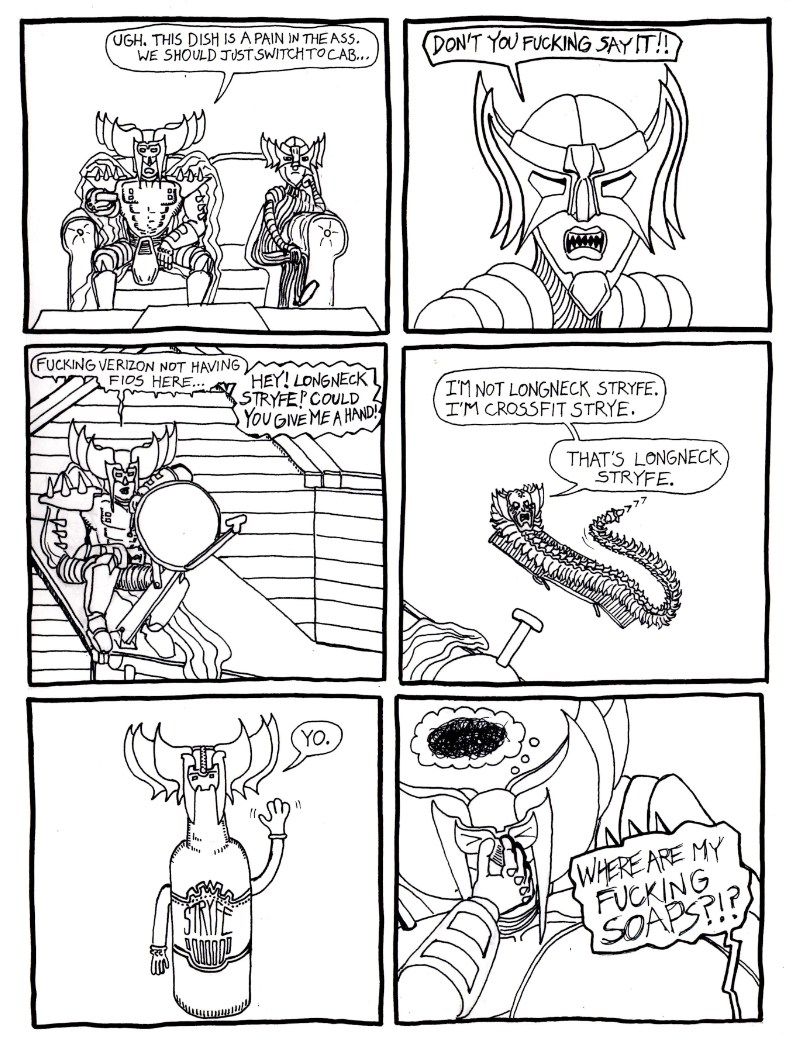 UGH. THIS DISH IS A PAIN IN THE ASS.
WE SHOULD JUST SWITCH TO CAB...
DON'T YOU FUCKING SAY IT!!
FUCKING VERIZON NOT HAVING
FIOS HERE...
HEY! LONGNECK
STRYFE! COULD
YOU GIVE ME A HAND!
I'M NOT LONGNECK STRYFE.
I'M CROSSFIT STRYE.
THAT'S LONGNECK
STRYFE.
YO.
STRYFE
WHERE ARE MY
FUCKING
SOAPS?!?